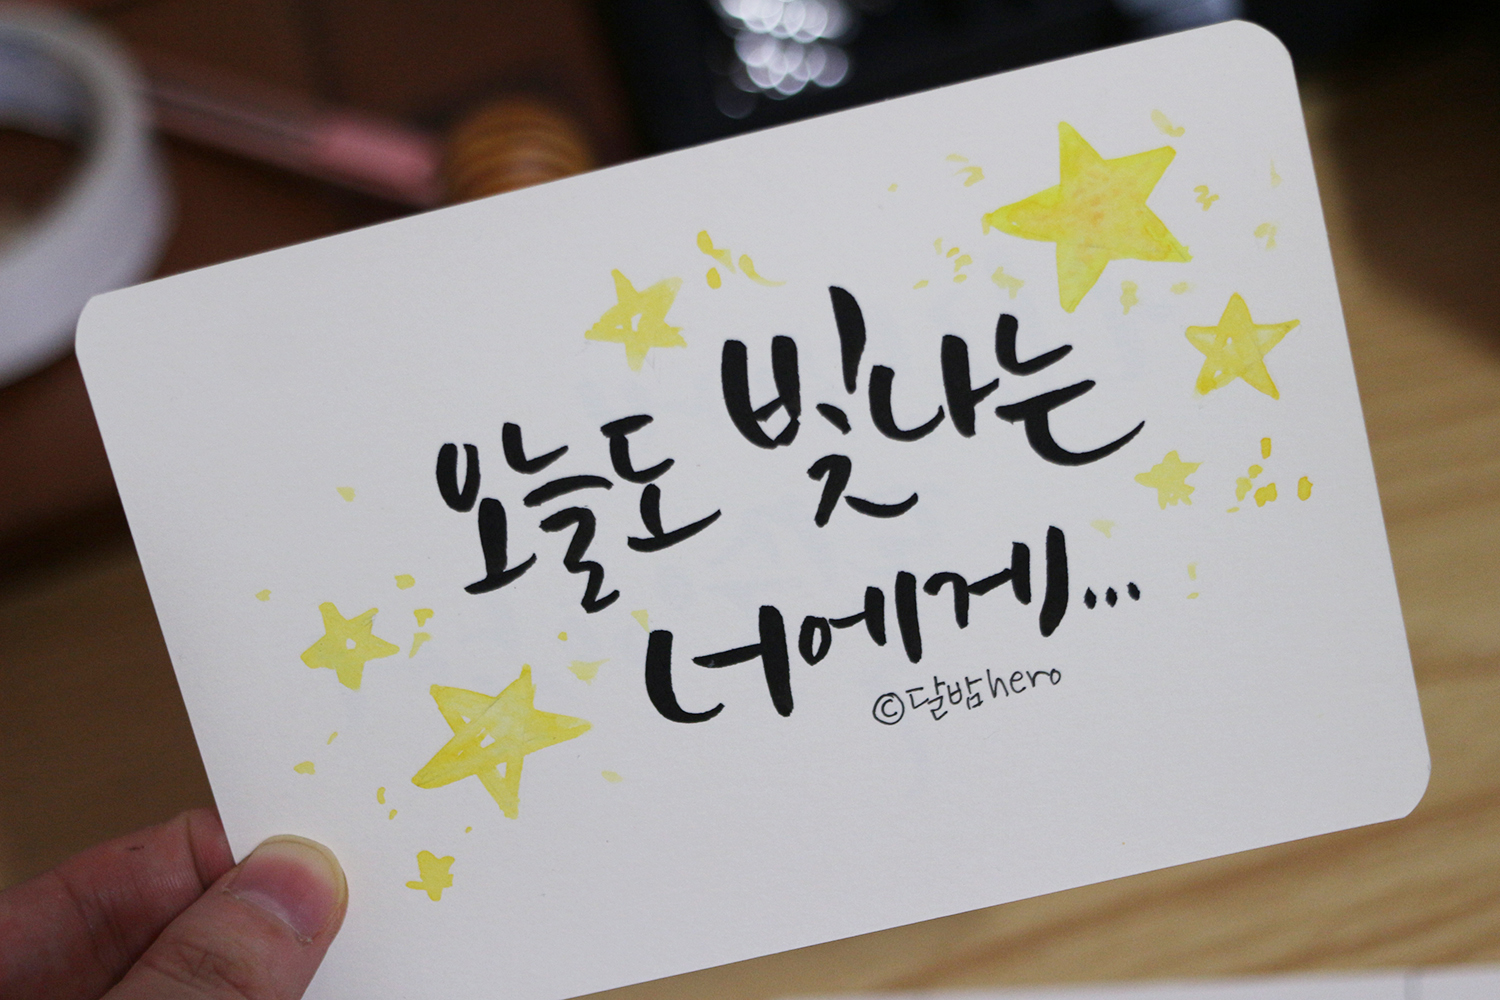 오늘도 빛나는
너에게...
©달밤hero